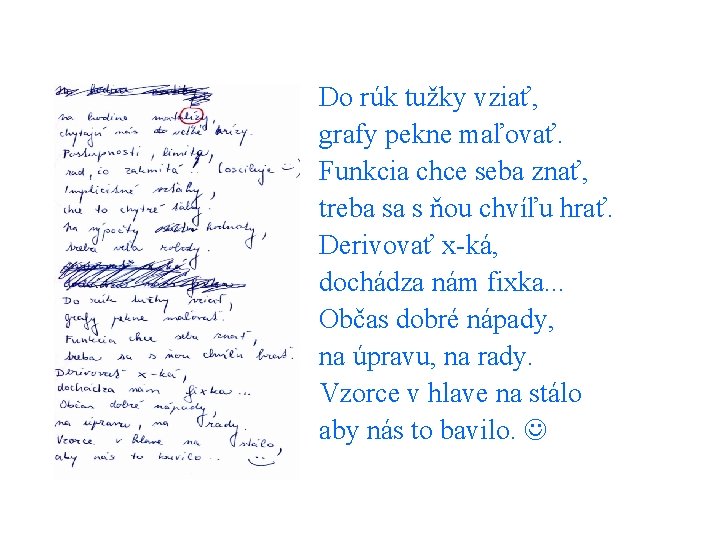 na hodine matalízy,
chytajú nás do veľké krízy.
Postupnosti, limita,
rad, čo zakmitá..! (osciluje :-)
Implicitné vzťahy,
chce to chytré ťahy.
Na výpočty hodnoty,
treba veľa roboty.
Do rúk tužky vziať,
grafy pekne maľovať.
Funkcia chce seba znať,
treba sa s ňou chvíľu hrať.
Derivovať x-ká,
dochádza nám fixka...
Občas dobré nápady,
na úpravu, na rady.
Vzorce v hlave na stálo,
aby nás to bavilo...
Do rúk tužky vziať,
grafy pekne maľovať.
Funkcia chce seba znať,
treba sa s ňou chvíľu hrať.
Derivovať x-ká,
dochádza nám fixka...
Občas dobré nápady,
na úpravu, na rady.
Vzorce v hlave na stálo
aby nás to bavilo. ☺